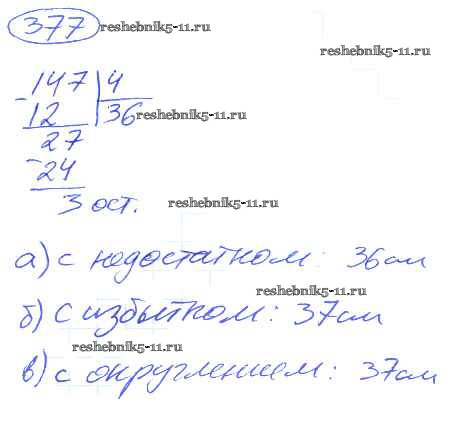 377 reshebnik5-11.ru
reshebnik5-11.ru
- 147 | 4
12 36 reshebnik5-11.ru
27
- 24
3 ост. reshebnik5-11.ru
а) с недостатком: 36см
reshebnik5-11.ru
б) с избытком: 37см
reshebnik5-11.ru
в) с округлением: 37см